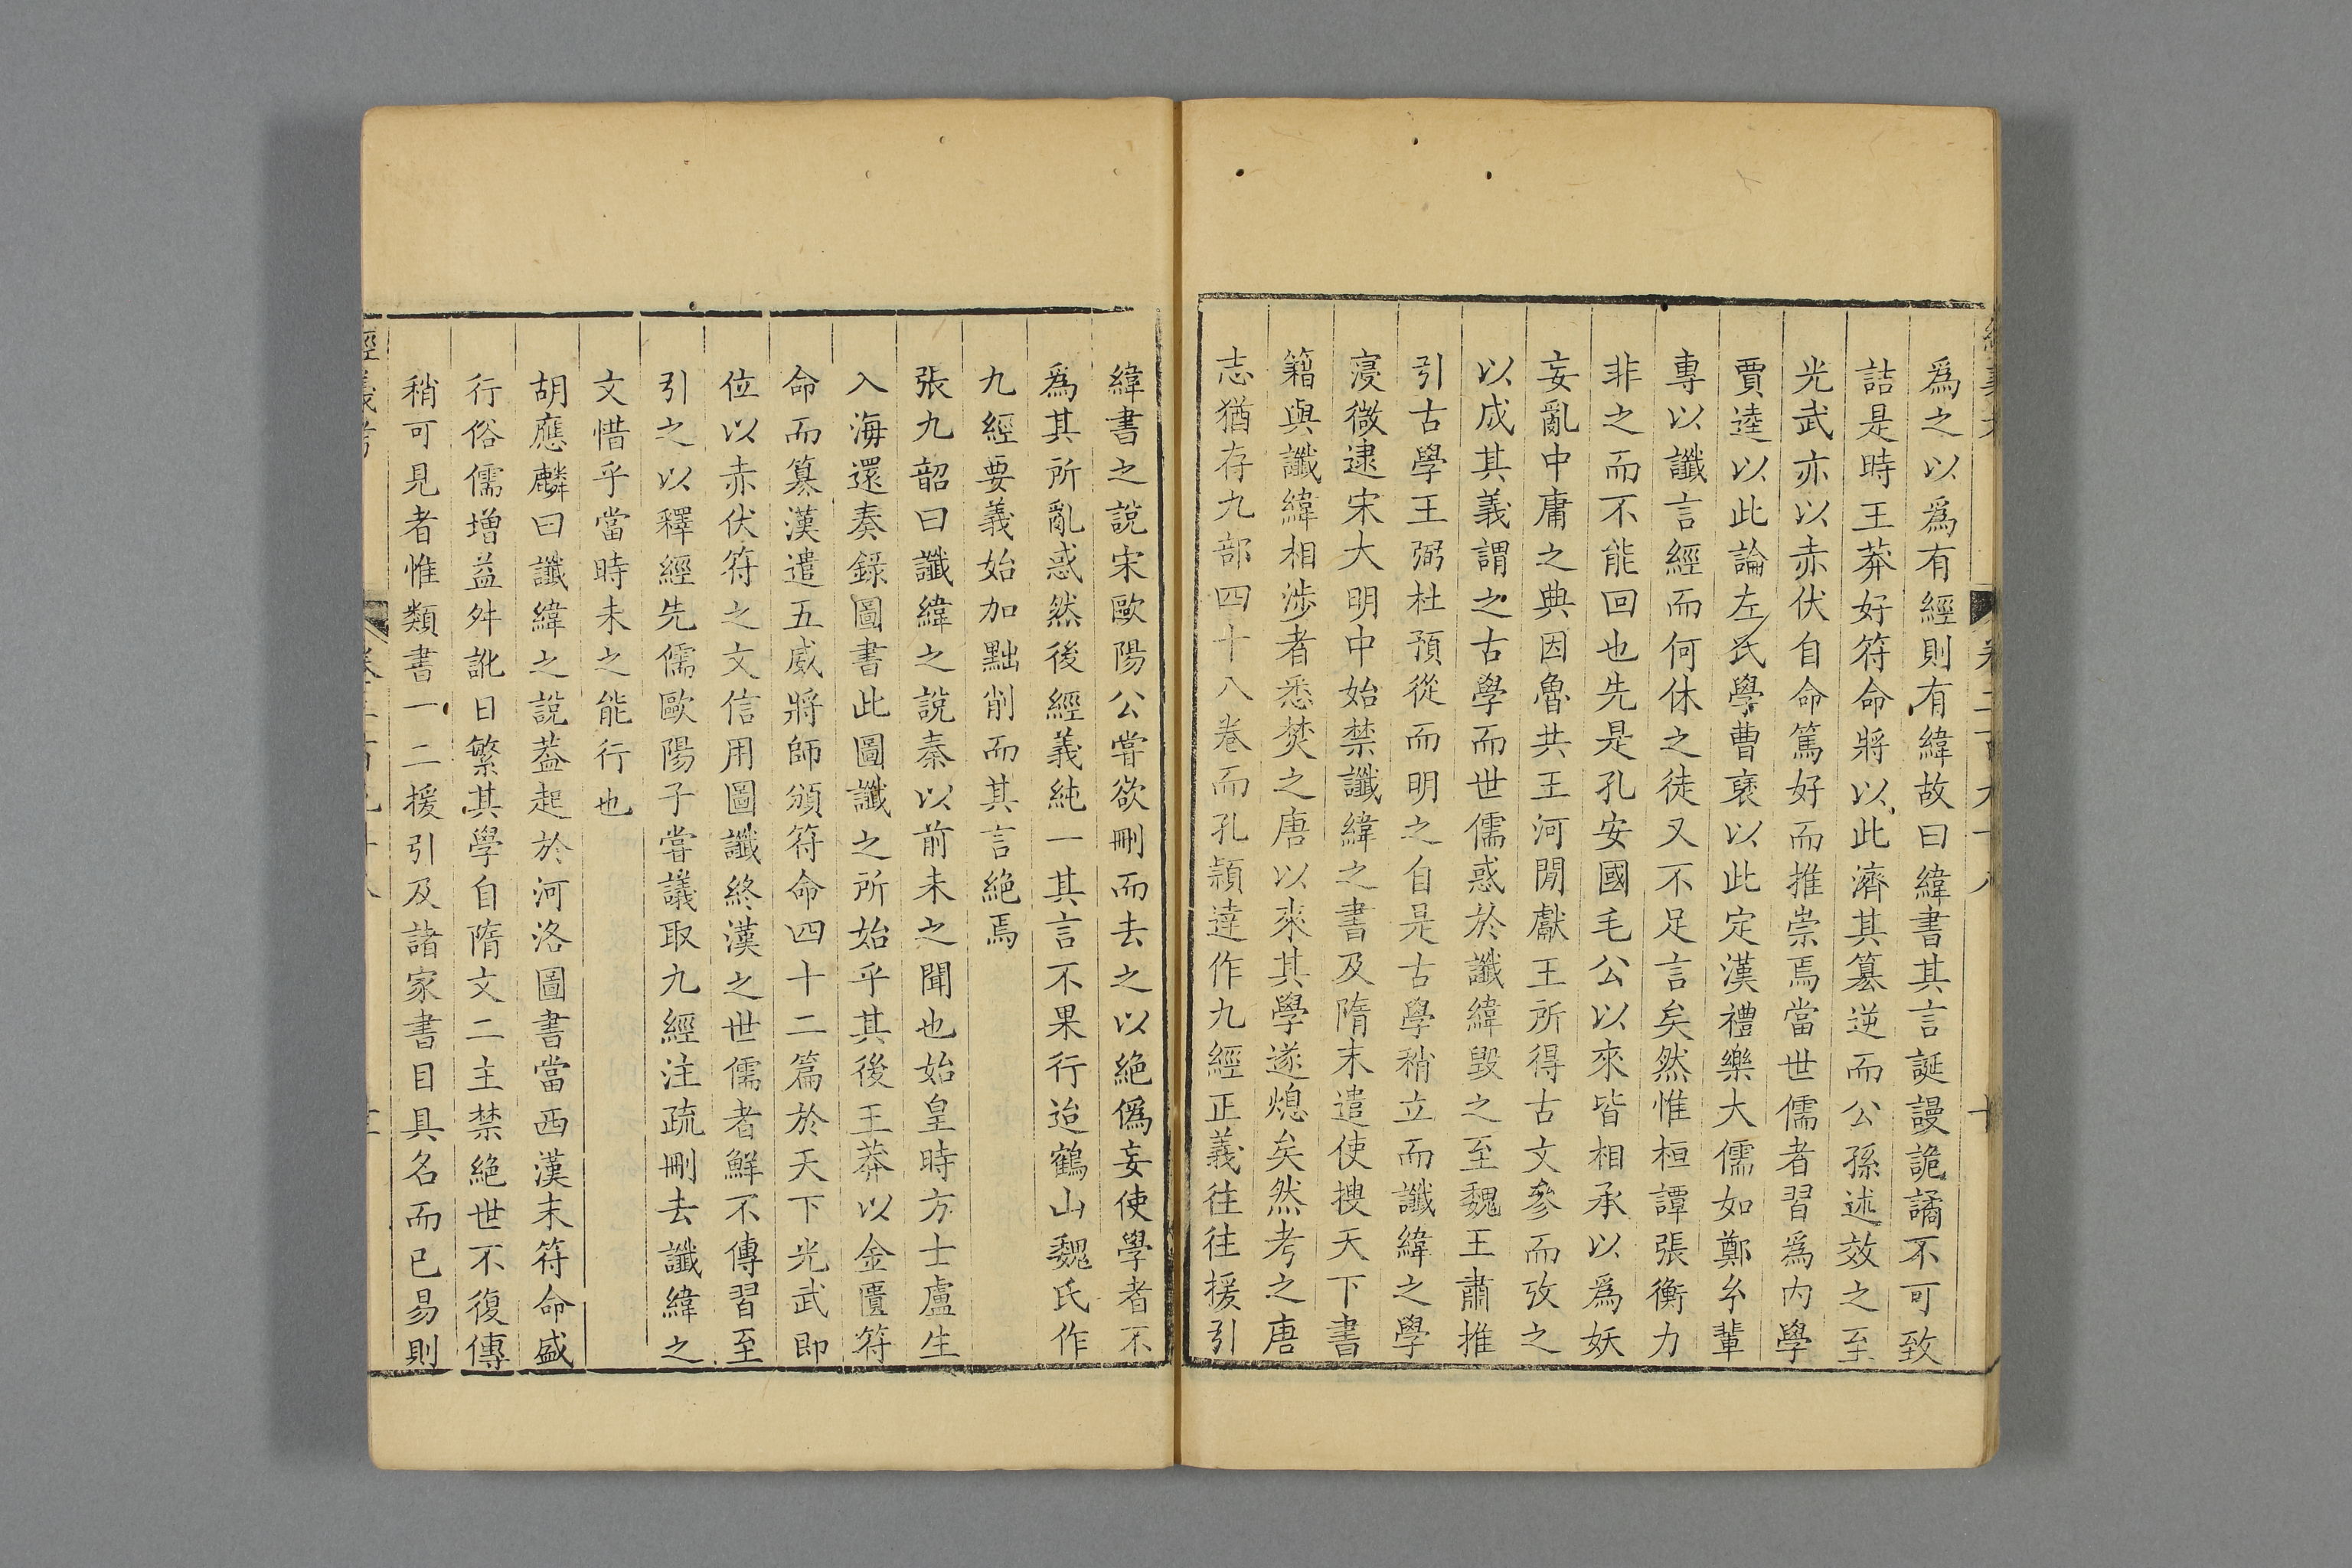 爲之以爲有經則有緯故曰緯書其言誕謾詭譎不可致
詰是時王莽好符命將以此濟其篡逆而公孫述效之至
光武亦以赤伏自命篤好而推崇焉當世儒者習爲內學
賈逵以此論左氏學曹褒以此定漢禮樂大儒如鄭𤣥輩
專以讖言經而何休之徒又不足言矣然惟桓譚張衡力
非之而不能回也先是孔安國毛公以來皆相承以爲妖
妄亂中庸之典因魯共王河閒獻王所得古文參而攷之
以成其義謂之古學而世儒惑於讖緯毀之至魏王肅推
引古學王弼杜預從而明之自是古學稍立而讖緯之學
寖微逮宋大明中始禁讖緯之書及隋末遣使搜天下書
籍與讖緯相涉者悉焚之唐以來其學遂熄矣然考之唐
志猶存九部四十八卷而孔穎達作九經正義往往援引
緯書之說宋歐陽公嘗欲刪而去之以絕僞妄使學者不
爲其所亂惑然後經義純一其言不果行迨鶴山魏氏作
九經要義始加黜削而其言絕焉
張九韶曰讖緯之說秦以前未之聞也始皇時方士盧生
入海還奏錄圖書此圖讖之所始乎其後王莽以金匱符
命而篡漢遣五威將師頒符命四十二篇於天下光武即
位以赤伏符之文信用圖讖終漢之世儒者鮮不傳習至
引之以釋經先儒歐陽子嘗議取九經注疏刪去讖緯之
文惜乎當時未之能行也
胡應麟曰讖緯之說葢起於河洛圖書當西漢末符命盛
行俗儒增益舛訛日繁其學自隋文二主禁絕世不復傳
稍可見者惟類書一二援引及諸家書目具名而已易則
經義考